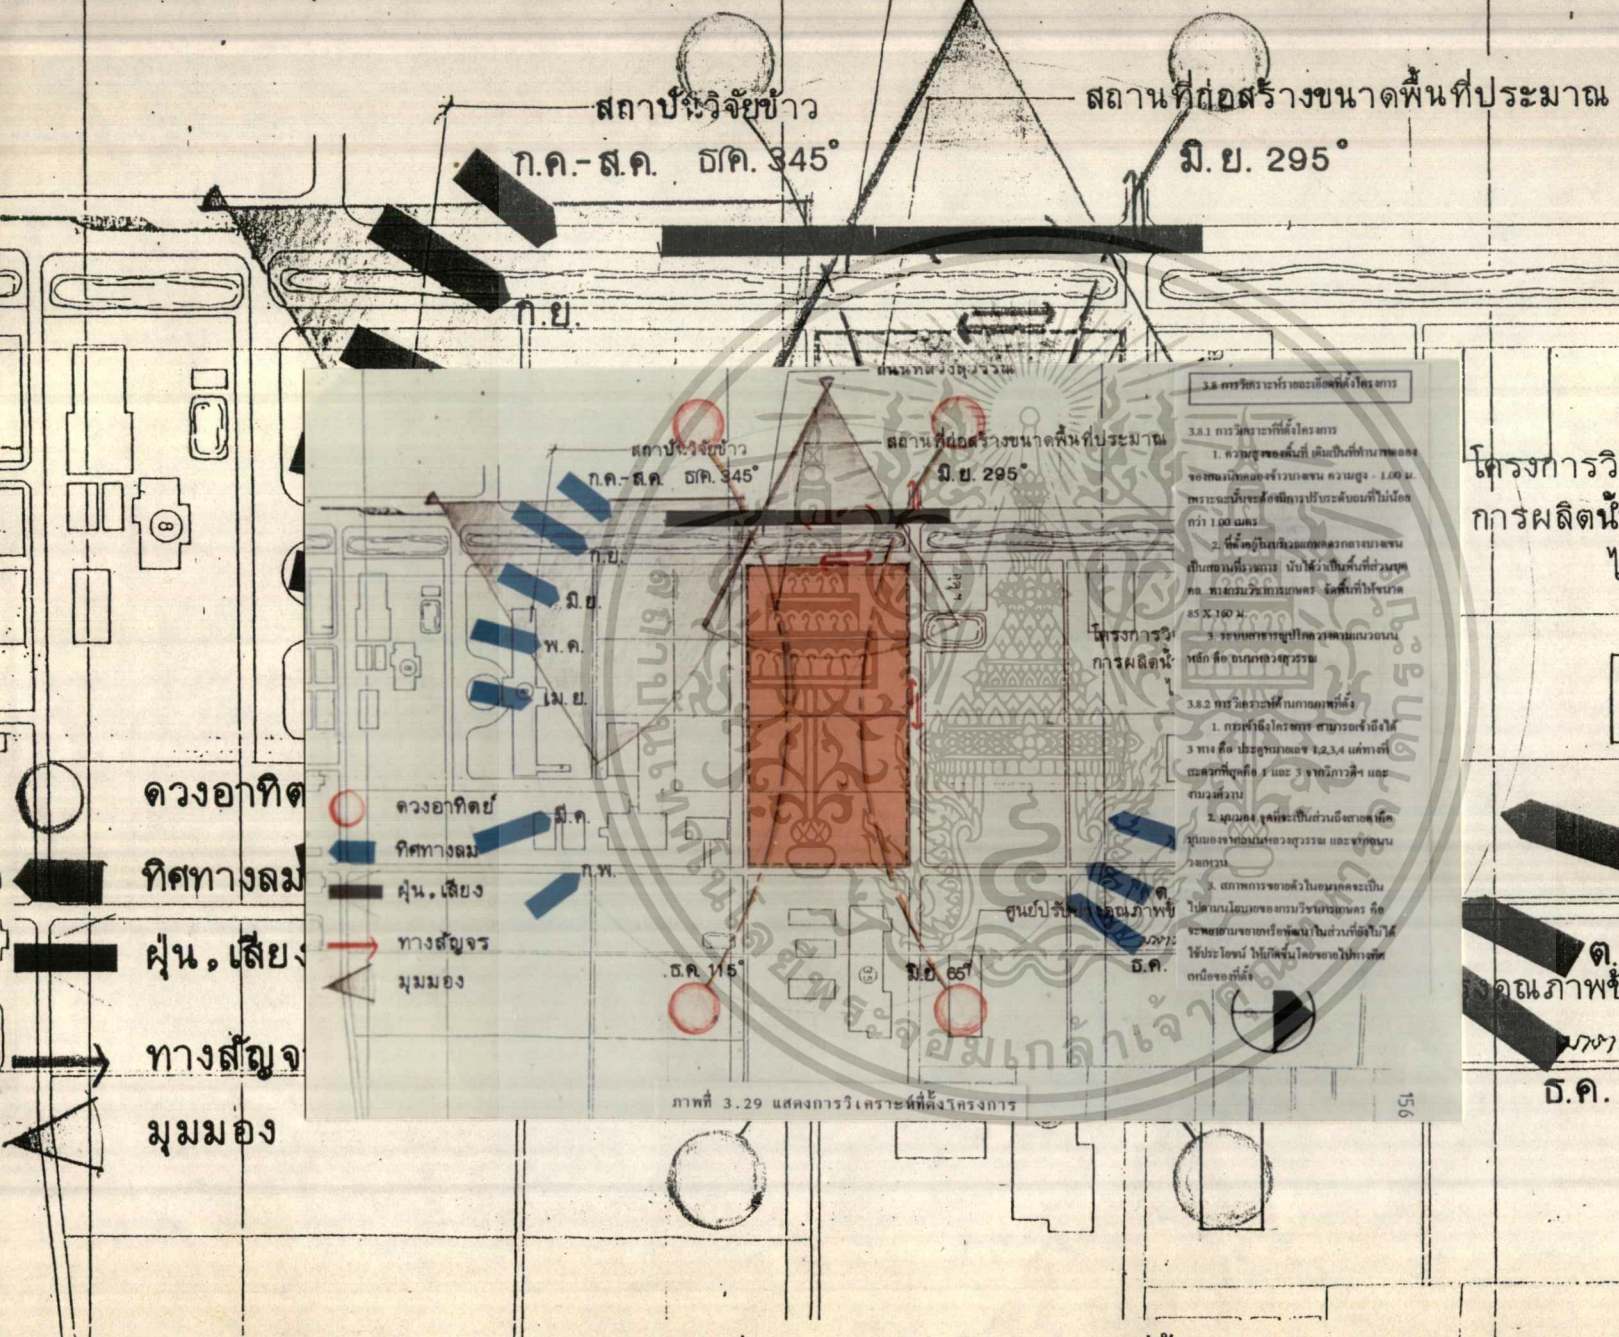 สถาบันวิจัยข้าว
สถานที่ก่อสร้างขนาดพื้นที่ประมาณ
ก.ค.-ส.ค. ธ.ค. 345°
มิ.ย. 295°
ก.ย.
โครงการวิ
การผลิตน้
ดวงอาทิต
ทิศทางลม
ฝุ่น, เสียง
ทางสัญจ
มุมมอง
ต.
คุณภาพข้
ธ.ค.
ถนนหลวงสุวรรณ
สถาบันวิจัยข้าว
สถานที่ก่อสร้างขนาดพื้นที่ประมาณ
ก.ค.-ส.ค. ธ.ค. 345°
มิ.ย. 295°
ก.ย.
มิ.ย.
พ.ค.
เม.ย.
โครงการวิ
การผลิตน้
ดวงอาทิตย์
มี.ค.
ทิศทางลม
ก.พ.
ฝุ่น, เสียง
ทางสัญจร
มุมมอง
ต.
ศูนย์ปรับปรุงคุณภาพข้
ธ.ค.
ธ.ค. 115°
มิ.ย. 65°
ภาพที่ 3.29 แสดงการวิเคราะห์ที่ตั้งโครงการ
156
3.8 การวิเคราะห์รายละเอียดที่ตั้งโครงการ
3.8.1 การวิเคราะห์ที่ตั้งโครงการ
1. ความสูงของพื้นที่ เดิมเป็นที่ทำนาทดลอง
ของสถานีทดลองข้าวบางเขน ความสูง - 1.00 ม.
เพราะฉะนั้นจะต้องมีการปรับระดับถมที่ไม่น้อย
กว่า 1.00 เมตร
2. ที่ตั้งอยู่ในบริเวณเกษตรกลางบางเขน
เป็นสถานที่ราชการ นับได้ว่าเป็นพื้นที่ส่วนบุค
คล ทางกรมวิชาการเกษตร จัดพื้นที่ให้ขนาด
85 X 160 ม.
3. ระบบสาธารณูปโภควางตามแนวถนน
หลัก คือ ถนนหลวงสุวรรณ
3.8.2 การวิเคราะห์ด้านกายภาพที่ตั้ง
1. การเข้าถึงโครงการ สามารถเข้าถึงได้
3 ทาง คือ ประตูหมายเลข 1,2,3,4 แต่ทางที่
สะดวกที่สุดคือ 1 และ 3 จากวิภาวดีฯ และ
งามวงศ์วาน
2. มุมมอง จุดที่จะเป็นส่วนดึงสายตาคือ
มุมมองจากถนนหลวงสุวรรณ และจากถนน
วงแหวน
3. สภาพการขยายตัวในอนาคตจะเป็น
ไปตามนโยบายของกรมวิชาการเกษตร คือ
จะพยายามขยายหรือพัฒนาในส่วนที่ยังไม่ได้
ใช้ประโยชน์ ให้เกิดขึ้นโดยขยายไปทางทิศ
เหนือของที่ตั้ง
สถาบันเทคโนโลยีพระจอมเกล้าเจ้าคุณทหารลาดกระบัง